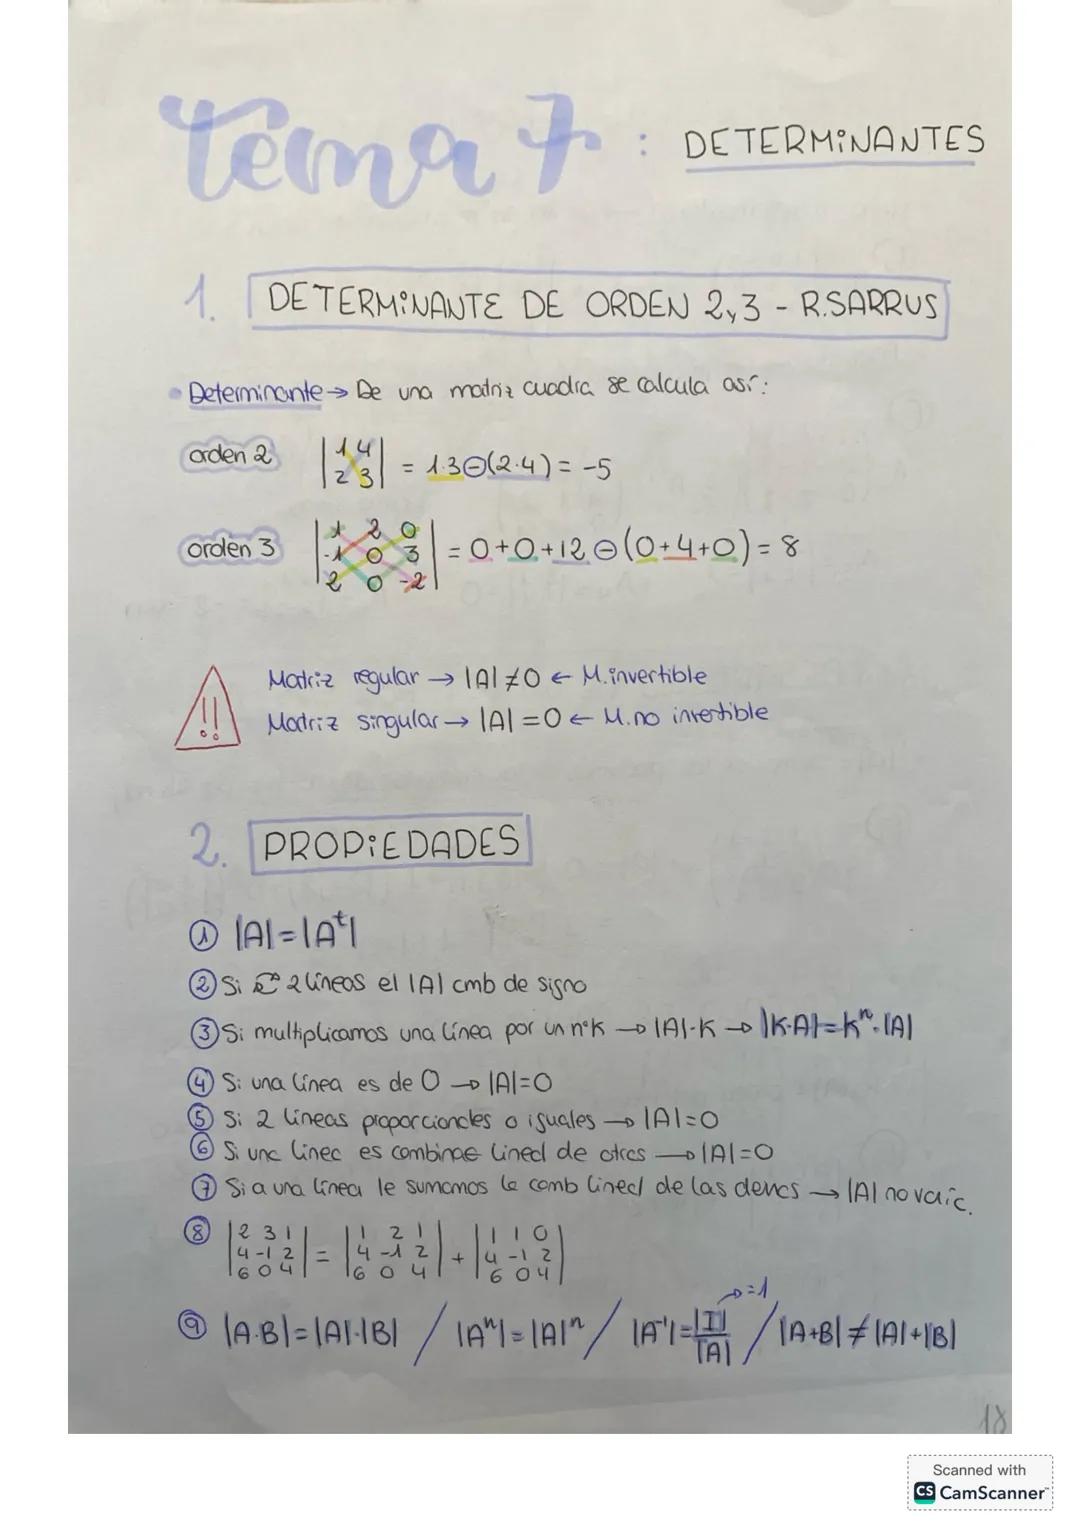 Tema 7 : DETERMINANTES
1. DETERMINANTE DE ORDEN 2y3 - R.SARRUS
Determinante → De una matriz cuadra se calcula así:
orden 2 |1 4; 2 3| = 1·3⊖(2·4) = -5
orden 3 |1 2 0; -1 0 3; 2 0 -2| = 0+0+12⊖(0+4+0) = 8
!! Matriz regular → |A| ≠ 0 ← M.invertible
Matriz singular → |A| = 0 ← M.no invertible
2. PROPiEDADES
① |A| = |Aᵗ|
② Si 2 líneas el |A| cmb de signo
③ Si multiplicamos una línea por un nºK → |A|·K → |K·A| = Kⁿ·|A|
④ Si una línea es de 0 → |A|=0
⑤ Si 2 líneas proporcionales o iguales → |A|=0
⑥ Si una linea es combinac lineal de otras → |A|=0
⑦ Si a una línea le sumamos la comb lineal de las demas → |A| no varía.
⑧ |2 3 1; 4 -1 2; 6 0 4| = |1 2 1; 4 -1 2; 6 0 4| + |1 1 0; 4 -1 2; 6 0 4|
⑨ |A·B| = |A|·|B| / |Aⁿ| = |A|ⁿ / |A⁻¹| = |I|/|A| → =1 / |A+B| ≠ |A|+|B|
18
Scanned with
CS CamScanner